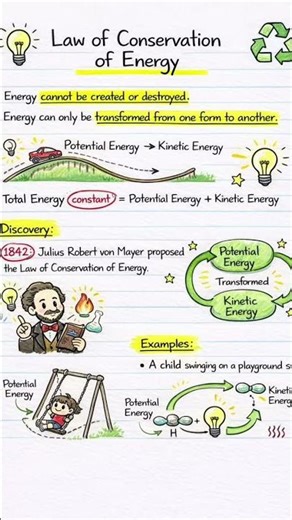 Law of Conservation
of Energy
Energy cannot be created or destroyed.
Energy can only be transformed from one form to another.
Potential Energy → Kinetic Energy
Total Energy constant = Potential Energy + Kinetic Energy
Discovery:
1842: Julius Robert von Mayer proposed
the Law of Conservation of Energy.
Potential
Energy
Transformed
Kinetic
Energy
Examples:
• A child swinging on a playground s
Potential
Energy
Potential
Energy
H
+
Kineti
Energ